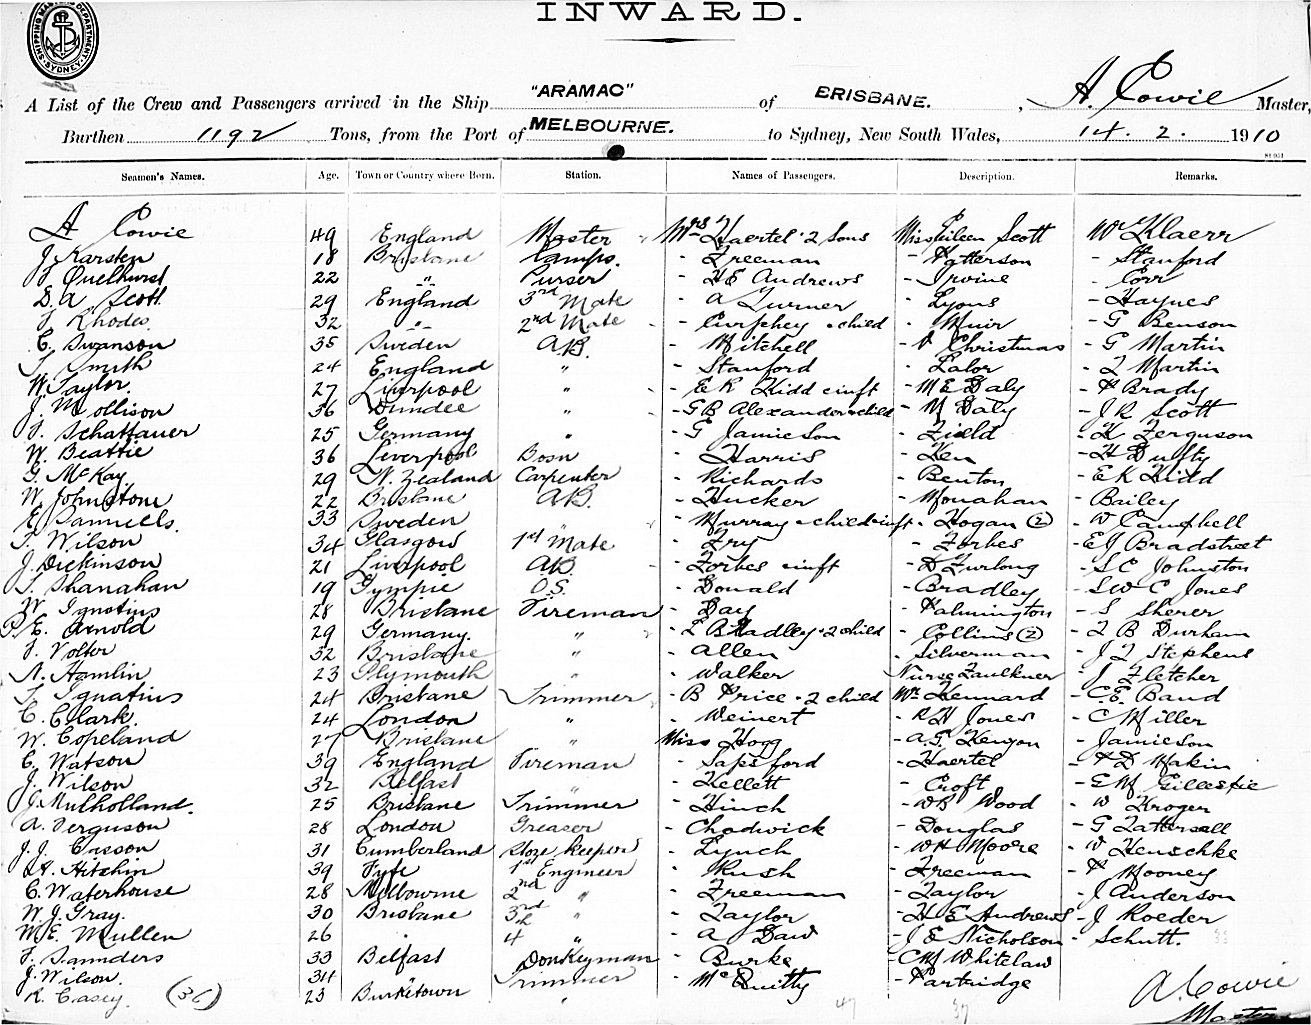 SHIPPING MASTERS DEPARTMENT SYDNEY
INWARD.
A List of the Crew and Passengers arrived in the Ship "ARAMAC" of BRISBANE. , A. Cowie Master,
Burthen 1192 Tons, from the Port of MELBOURNE. to Sydney, New South Wales, 14. 2. 1910
Seamen's Names. Age. Town or Country where Born. Station. Names of Passengers. Description. Remarks.
A Cowie 49 England Master Mrs Haertel & 2 Sons Miss Eileen Scott Mr Klaerr
J. Karsten 18 Brisbane Lamps. - Freeman - Patterson - Stanford
22 " Purser - H E Andrews - Irvine - Corr
D. A. Scott 29 England 3rd Mate - A Turner - Lyons - Haynes
T. Rhodes. 32 " 2nd Mate - Curphey & child - Muir - G Benson
C. Swanson 35 Sweden AB. - Mitchell - V Christmas - G Martin
T. Smith 24 England " - Stanford - Lalor - T Martin
W. Taylor. 27 Liverpool " - E R Kidd & inft - M E Daly - P Brady
J. Mollison 36 Dundee " - G B Alexander & child - M Daly - J R Scott
T. Schattauer 25 Germany " - G Jamieson - Field - H Ferguson
W. Beattie 36 Liverpool Bosn - Harris - Ken - H Dufty
G. McKay 29 N. Zealand Carpenter - Richards - Benton - E K Kidd
W. Johnstone 22 Brisbane AB. - Hucker - Monahan - Bailey
E. Samuels. 33 Sweden " - Murray & child & inft - Hogan (2) - W Campbell
T. Wilson 34 Glasgow 1st Mate - Fry - Forbes - E J Bradstreet
J. Dickinson 21 Liverpool AB. - Forbes & inft - D Furlong - S C Johnston
T. Shanahan 19 Gympie O.S. - Donald - Bradley - S W C Jones
W. Ignatius 28 Brisbane Fireman - Day - Palmington - S Sherer
P. E. Arnold 29 Germany. " - L Bradley & 2 child - Collins (2) - T B Durham
T. Volter 32 Brisbane " - Allen - Silverman - J T Stephens
A. Hamlin 23 Plymouth " - Walker Nurse Faulkner - J Fletcher
T. Ignatius 24 Brisbane Trimmer - B Price & 2 child Mr Kennard - C. E. Band
C. Clark. 24 London " - Weinert - R H Jones - C Miller
W. Copeland 27 Brisbane " Miss Hogg - A. G. Kenyon - Jamieson
C. Watson 39 England Fireman - Sapsford - Haertel - P D Makin
J. Wilson 32 Belfast " - Kellett - Croft - E M Gillespie
J. Mulholland. 25 Brisbane Trimmer - Hinch - W R Wood - W Kroger
A. Ferguson 28 London Greaser - Chadwick - Douglas - G Tattersall
J. J. Casson 31 Cumberland Store keeper - Lynch - W H Moore - W Henschke
H. Hitchin 39 Fyfe 1st Engineer - Rush - Freeman - P Mooney
C. Waterhouse 28 Melbourne 2nd " - Freeman - Taylor - J Anderson
W. J. Gray. 30 Brisbane 3rd " - Taylor - H E Andrews - J Roeder
W. E. Mullen 26 " 4th " - A Daw - J E Nicholson - Schutt.
F. Saunders 33 Belfast Donkeyman - Burke - C M Whitelaw
J. Wilson. 34 " Trimmer - McQuitty - Partridge
R. Casey. (36) 23 Burketown " 47 37 A. Cowie
Master